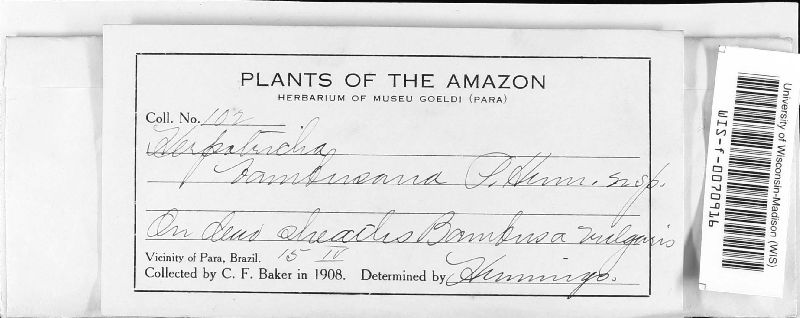 PLANTS OF THE AMAZON
HERBARIUM OF MUSEU GOELDI (PARA)
Coll. No. 102
Herpotricha
bambusana P. Henn. n. sp.
On dead sheaths Bambusa vulgaris
Vicinity of Para, Brazil. 15 IV
Collected by C. F. Baker in 1908. Determined by Hennings.
University of Wisconsin-Madison (WIS)
WIS-f-0070916